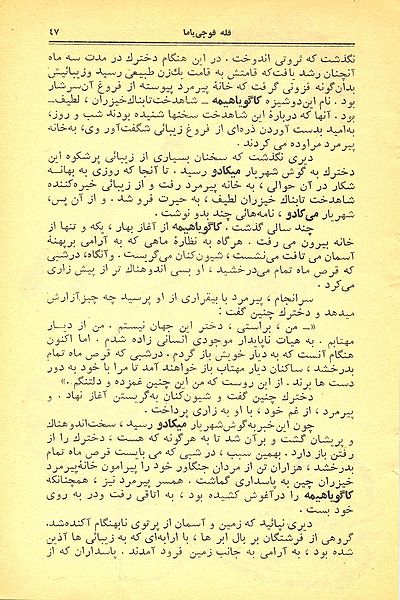 قله فوجی‌یاما
۴۷
نگذشت که ثروتی اندوخت . در این هنگام دخترك در مدت سه ماه
آنچنان رشد یافت که قامتش به قامت یك زن طبیعی رسید وزیبائیش
بدان‌گونه فزونی گرفت که خانهٔ پیرمرد پیوسته از فروغ آن سرشار
بود . نام این دوشیزه کاگویاهیمه ــ شاهدخت تابناك خیزران ، لطیف ــ
بود . آنها که دربارهٔ این شاهدخت سخنها شنیده بودند شب و روز،
به‌امید بدست آوردن ذره‌ای از فروغ زیبائی شگفت‌آور وی، به‌خانه
پیرمرد مراوده می کردند .
دیری نگذشت که سخنان بسیاری از زیبائی پرشکوه این
دخترك به گوش شهریار میکادو رسید . تا آنجا که روزی به بهانه
شکار در آن حوالی ، به خانه پیرمرد رفت و از زیبائی خیره‌کننده
شاهدخت تابناك خیزران لطیف ، به حیرت فرو شد . و از آن پس،
شهریار می‌کادو ، نامه‌هائی چند بدو نوشت .
چند سالی گذشت . کاگویاهیمه از آغاز بهار ، یکه و تنها از
خانه بیرون می رفت . هرگاه به نظارهٔ ماهی که به آرامی برپهنهٔ
آسمان می تافت می‌نشست ، شیون‌کنان می‌گریست . وآنگاه، درشبی
که قرص ماه تمام می‌درخشید ، او بسی اندوهناك تر از پیش زاری
می‌کرد .
سرانجام ، پیرمرد با بیقراری از او پرسید چه چیز آزارش
میدهد و دخترك چنین گفت :
«ــ من ، براستی ، دختر این جهان نیستم . من از دیار
مهتابم . به هیات ناپایدار موجودی انسانی زاده شدم . اما اکنون
هنگام آنست که به دیار خویش باز گردم . درشبی که قرص ماه تمام
بدرخشد ، ساکنان دیار مهتاب باز خواهند آمد تا مرا با خود به دور
دست ها برند . از این روست که من این چنین غمزده و دلتنگم .»
دخترك چنین گفت و شیون‌کنان به‌گریستن آغاز نهاد . و
پیرمرد ، از غم خود ، با او به زاری پرداخت .
چون این خبر به گوش شهریار میکادو رسید ، سخت اندوهناك
و پریشان گشت و برآن شد تا به هرگونه که هست ، دخترك را از
رفتن باز دارد . بهمین سبب ، در شبی که می بایست قرص ماه تمام
بدرخشد ، هزاران تن از مردان جنگاور خود را پیرامون خانهٔ پیرمرد
خیزران چین به پاسداری گماشت . همسر پیرمرد نیز ، همچنانکه
کاگویاهیمه را درآغوش کشیده بود ، به اتاقی رفت ودر به روی
خود بست .
دیری نپائید که زمین و آسمان از پرتوی نابهنگام آکنده‌شد.
گروهی از فرشتگان بر بال ابر ها ، با ارابه‌ای که به زیبائی ها آذین
شده بود ، به آرامی به جانب زمین فرود آمدند . پاسداران که از